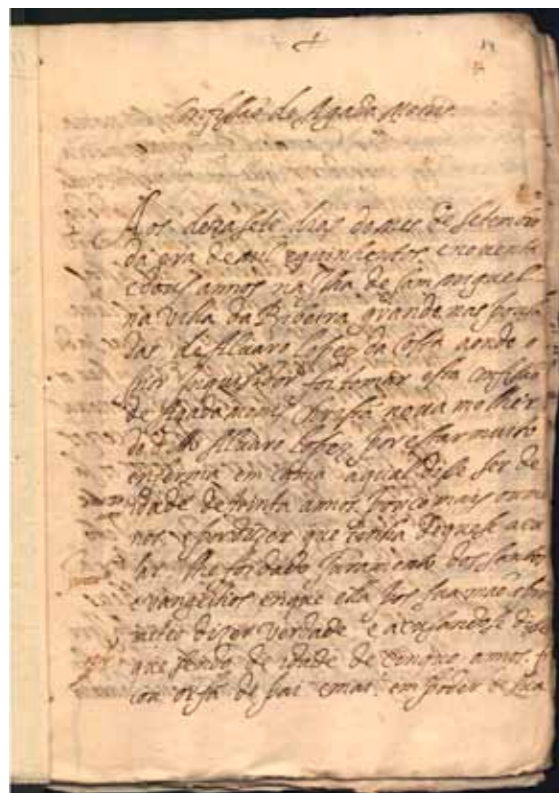 Confissão de Agada Nunes
Aos dezasete dias do mes de setembro
da era de mil e quinhentos e noventa
e dous annos na Ilha de sam miguel
na villa da Ribeira grande nas pousa
das de Alvaro Lopez da Costa aonde o
sõr Inquisidor foi tomar esta confissão
de Agada nunes christã nova molher
do dito Alvaro Lopez por estar muito
enferma em cama a qual disse ser de
idade de trinta annos pouco mais ou me
nos, e por dizer que tinha de que se acu
sar lhe foi dado juramento dos santos
evangelhos em que ella pos sua mão e pro
meteo dizer verdade e acusandose disse
que sendo de idade de cinquo annos fi
cou orfã de pai e mai em poder de sua